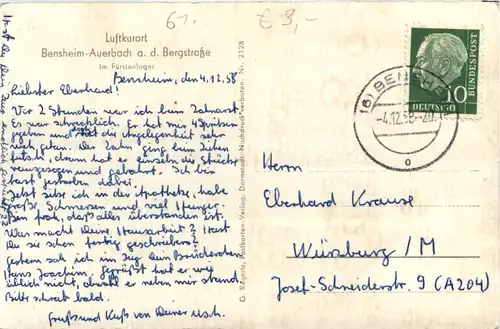 61.
€ 3,-
Luftkurort
Bensheim-Auerbach a. d. Bergstraße
Im Fürstenlager
Bensheim, den 4.12.58
Liebster Eberhard!
Vor 2 Stunden war ich beim Zahnarzt.
Es war schrecklich. Er hat mir 4 Spritzen
gegeben und hat die Angelegenheit sehr
nach getan. Der Zahn ging beim Ziehen
futsch, dann hat er einzeln die Stücke
rausgezogen und gebohrt. Ich bin
fast gestorben dabei.
Jetzt sitze ich in der Apotheke, habe
große Schmerzen und viel Hunger.
Bin froh, daß alles überstanden ist.
Was macht Deine Hausarbeit? Hast
Du sie schon fertig geschrieben?
Gestern sah ich im Zug Dein Brüderchen
Hans Joachim. Gegrüßt hat er wie
üblich nicht, obwohl er neben mir stand.
Bitte schreib bald.
Gruß und Kuß von Deiner
G. Rögnitz, Postkarten-Verlag, Darmstadt. Nachdruck verboten. Nr. 2128
(16) BENSHEIM
-4.12.58-20
DEUTSCHE
BUNDESPOST
10
Herrn
Eberhard Krause
Würzburg/M
Josef-Schneiderstr. 9 (A204)